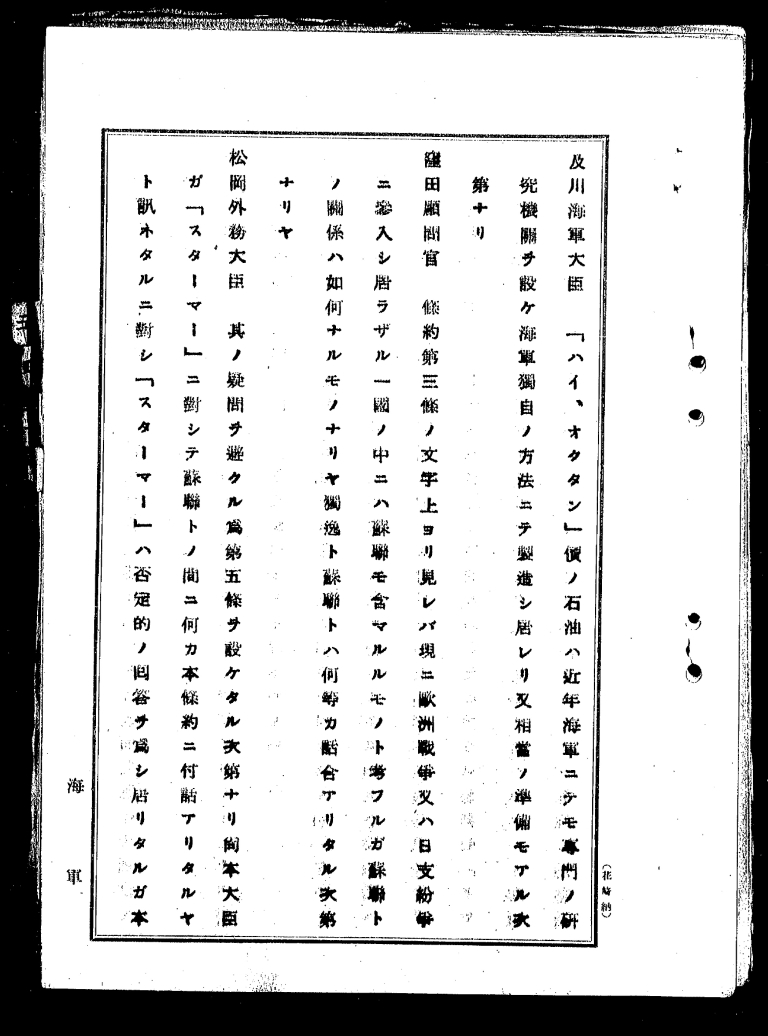 及川海軍大臣　「ハイ、オクタン」價ノ石油ハ近年海軍ニテモ專門ノ研
究機關ヲ設ケ海軍獨自ノ方法ニテ製造シ居レリ又相當ノ準備モアル次
第ナリ
窪田顧問官　條約第三條ノ文字上ヨリ見レバ現ニ歐洲戰爭又ハ日支紛爭
ニ參入シ居ラザル一國ノ中ニハ蘇聯モ含マルルモノト考フルガ蘇聯ト
ノ關係ハ如何ナルモノナリヤ獨逸ト蘇聯トハ何等カ話合アリタル次第
ナリヤ
松岡外務大臣　其ノ疑問ヲ避クル爲第五條ヲ設ケタル次第ナリ尙本大臣
ガ「スターマー」ニ對シテ蘇聯トノ間ニ何カ本條約ニ付話アリタルヤ
ト訊ネタルニ對シ「スターマー」ハ否定的ノ回答ヲ爲シ居リタルガ本
海軍
（花崎納）